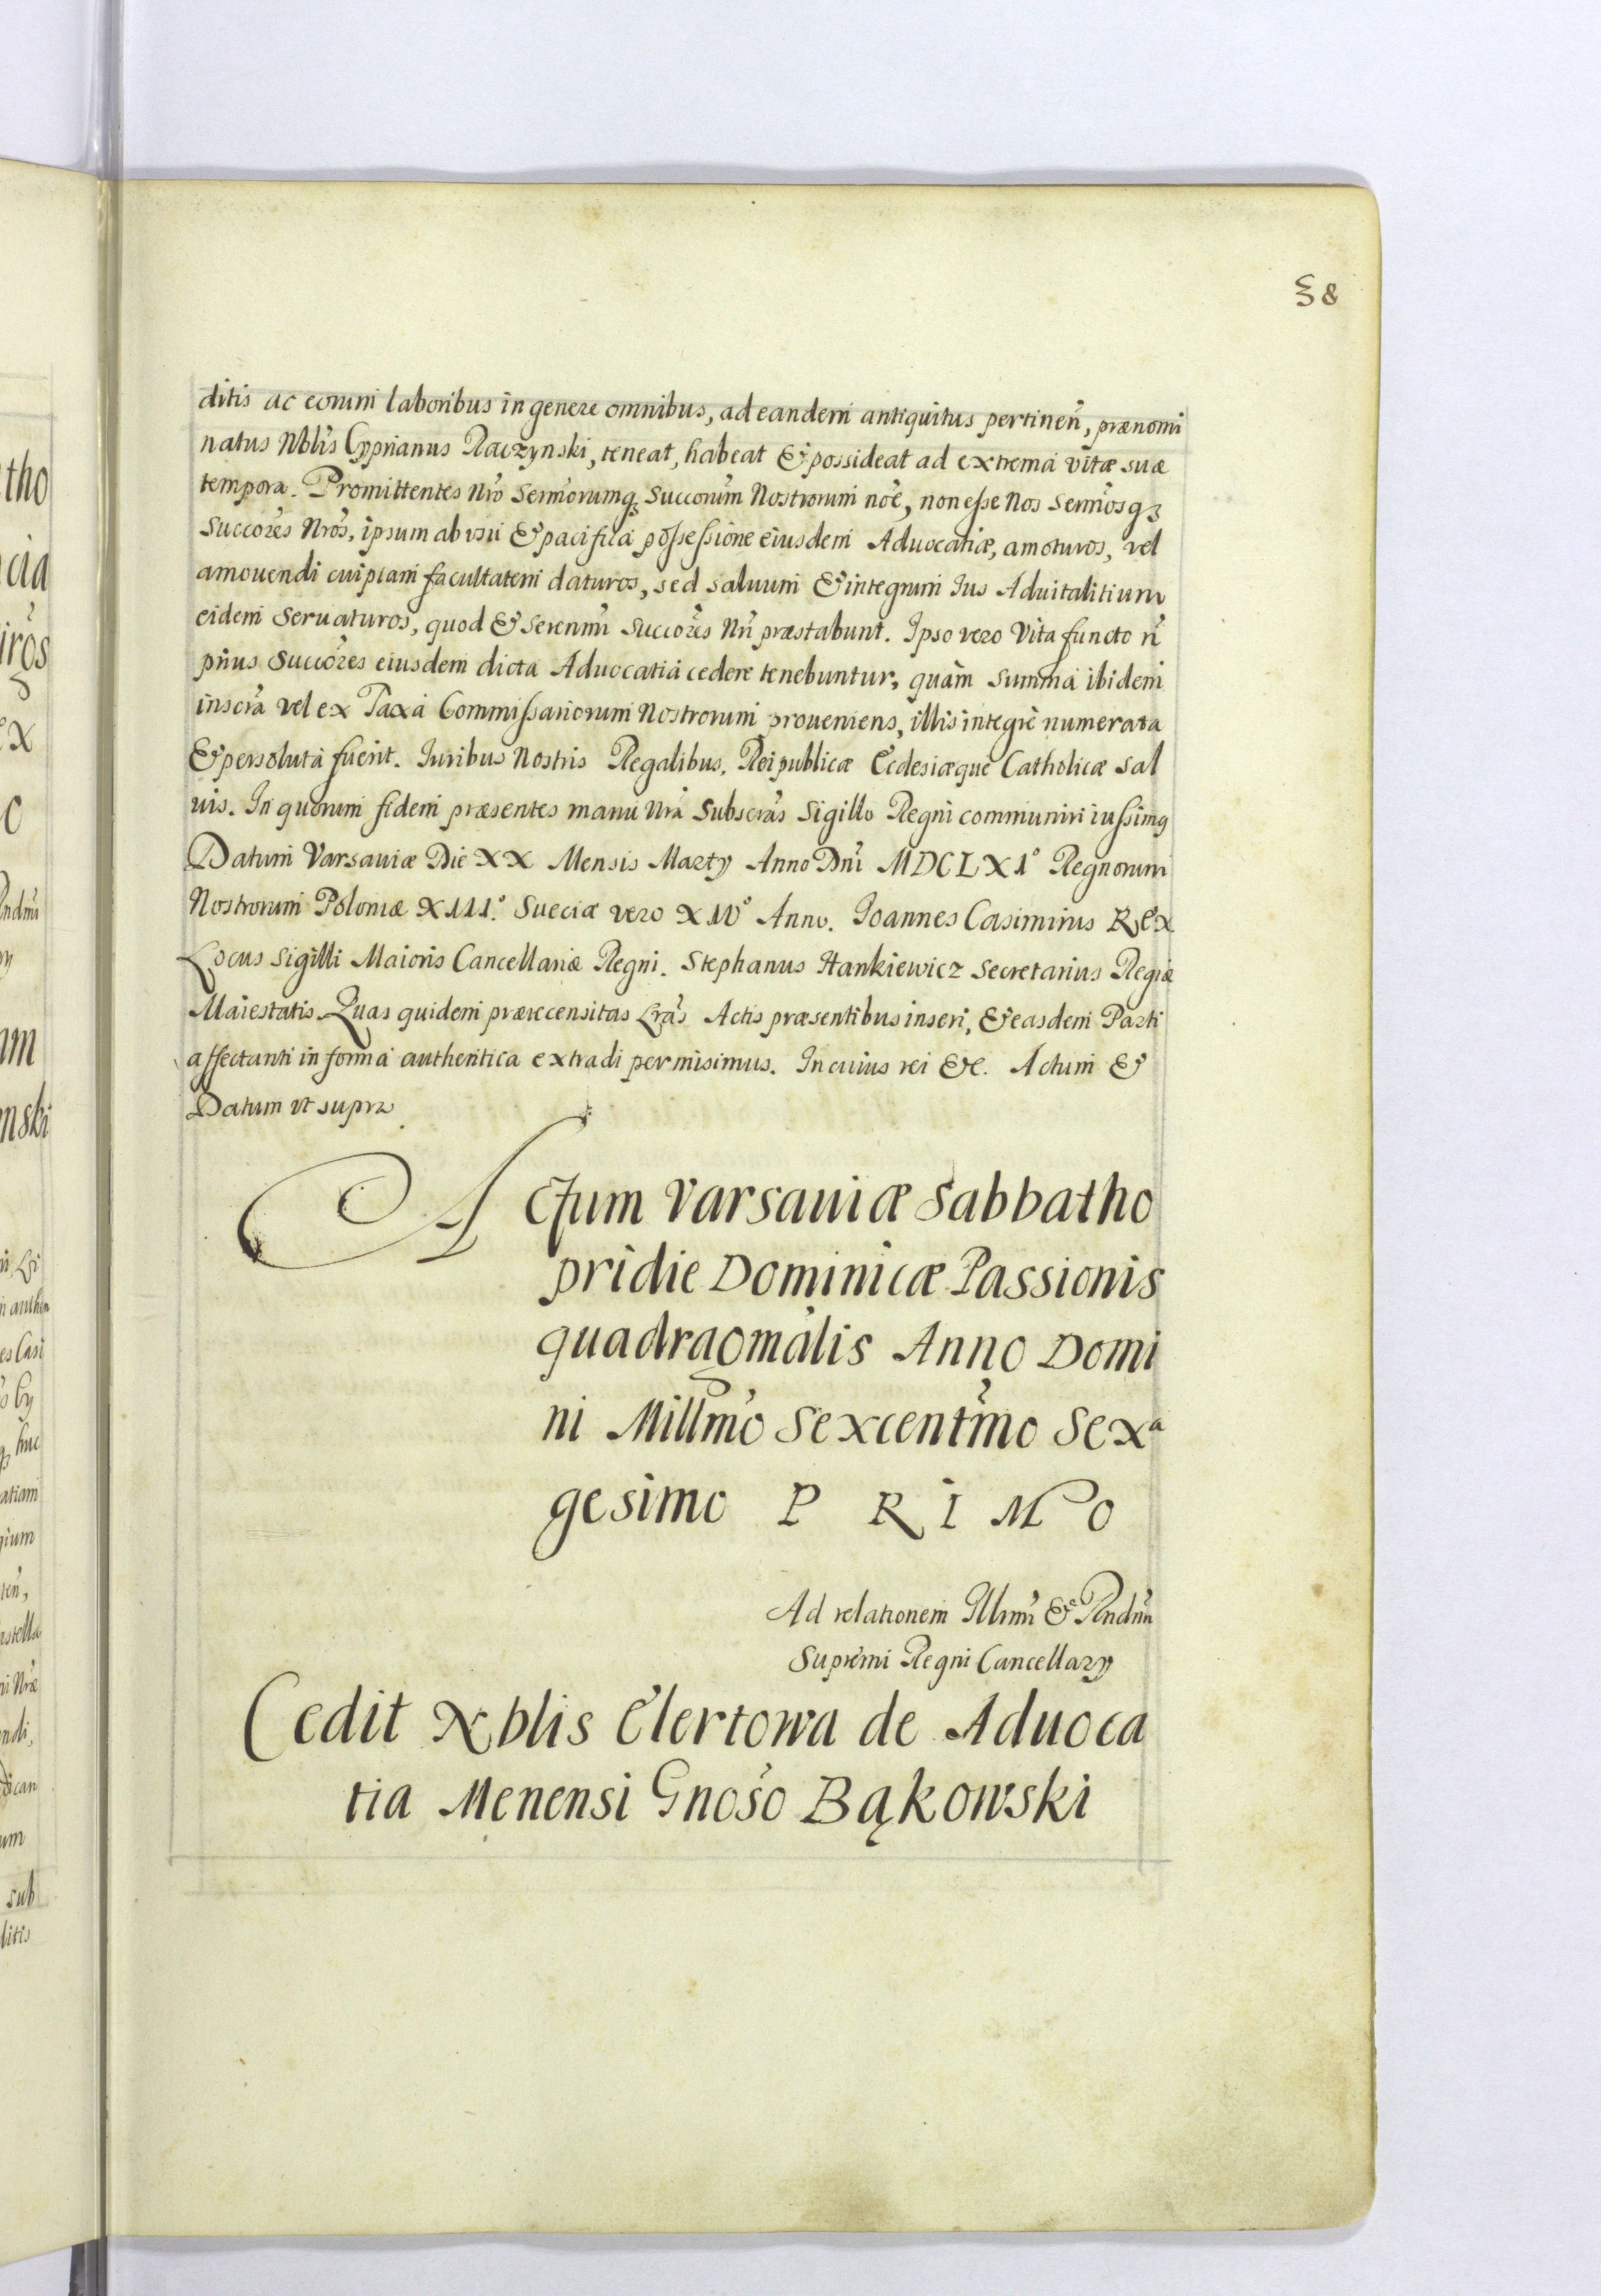 38
ditis ac eorum laboribus in genere omnibus, ad eandem antiquitus pertineñ, prænomi
natus Nblis Cyprianus Raczynski, teneat, habeat & possideat ad extrema vitæ suæ
tempora. Promittentes Nro Sermorumq3 Succorum Nostrorum noe, non esse Nos Sermosq3
Succores Nros, ipsum ab usu & pacifica possessione eiusdem Aduocatiæ, amoturos, vel
amouendi cuipiam facultatem daturos, sed saluum & integrum Ius Aduitalitium
eidem Seruaturos, quod & Serenmi Succores Nri præstabunt. Ipso vero Vita functo ñ
prius Succores eiusdem dicta Aduocatia cedere tenebuntur, quàm Summa ibidem
inscra vel ex Taxa Commissariorum Nostrorum proueniens, illis integrè numerata
& persoluta fuerit. Iuribus Nostris Regalibus, Reipublicæ Ecclesiæque Catholicæ sal
uis. In quorum fidem præsentes manu Nra Subscras Sigillo Regni communiri iussimq
Datum Varsauiæ Die XX Mensis Marty Anno Dni MDCLXI° Regnorum
Nostrorum Poloniæ XIII.° Sueciæ vero XIV° Anno. Ioannes Casimirus Rex
Locus Sigilli Maioris Cancellariæ Regni. Stephanus Hankiewicz Secretarius Regiæ
Maiestatis Quas quidem præxcensitas Lras Actis præsentibus inseri, & easdem Parti
affectanti in forma authentica extradi permisimus. In cuius rei &c. Actum &
Datum vt supra.
Actum Varsauiæ Sabbatho
pridie Dominicæ Passionis
quadragmalis Anno Domi
ni Millmo Sexcentmo Sexa
gesimo PRIMO
Ad relationem Illmi & Rndmi
Supremi Regni Cancellary
Cedit Nblis Elertowa de Aduoca
tia Menensi Gnoso Bąkowski